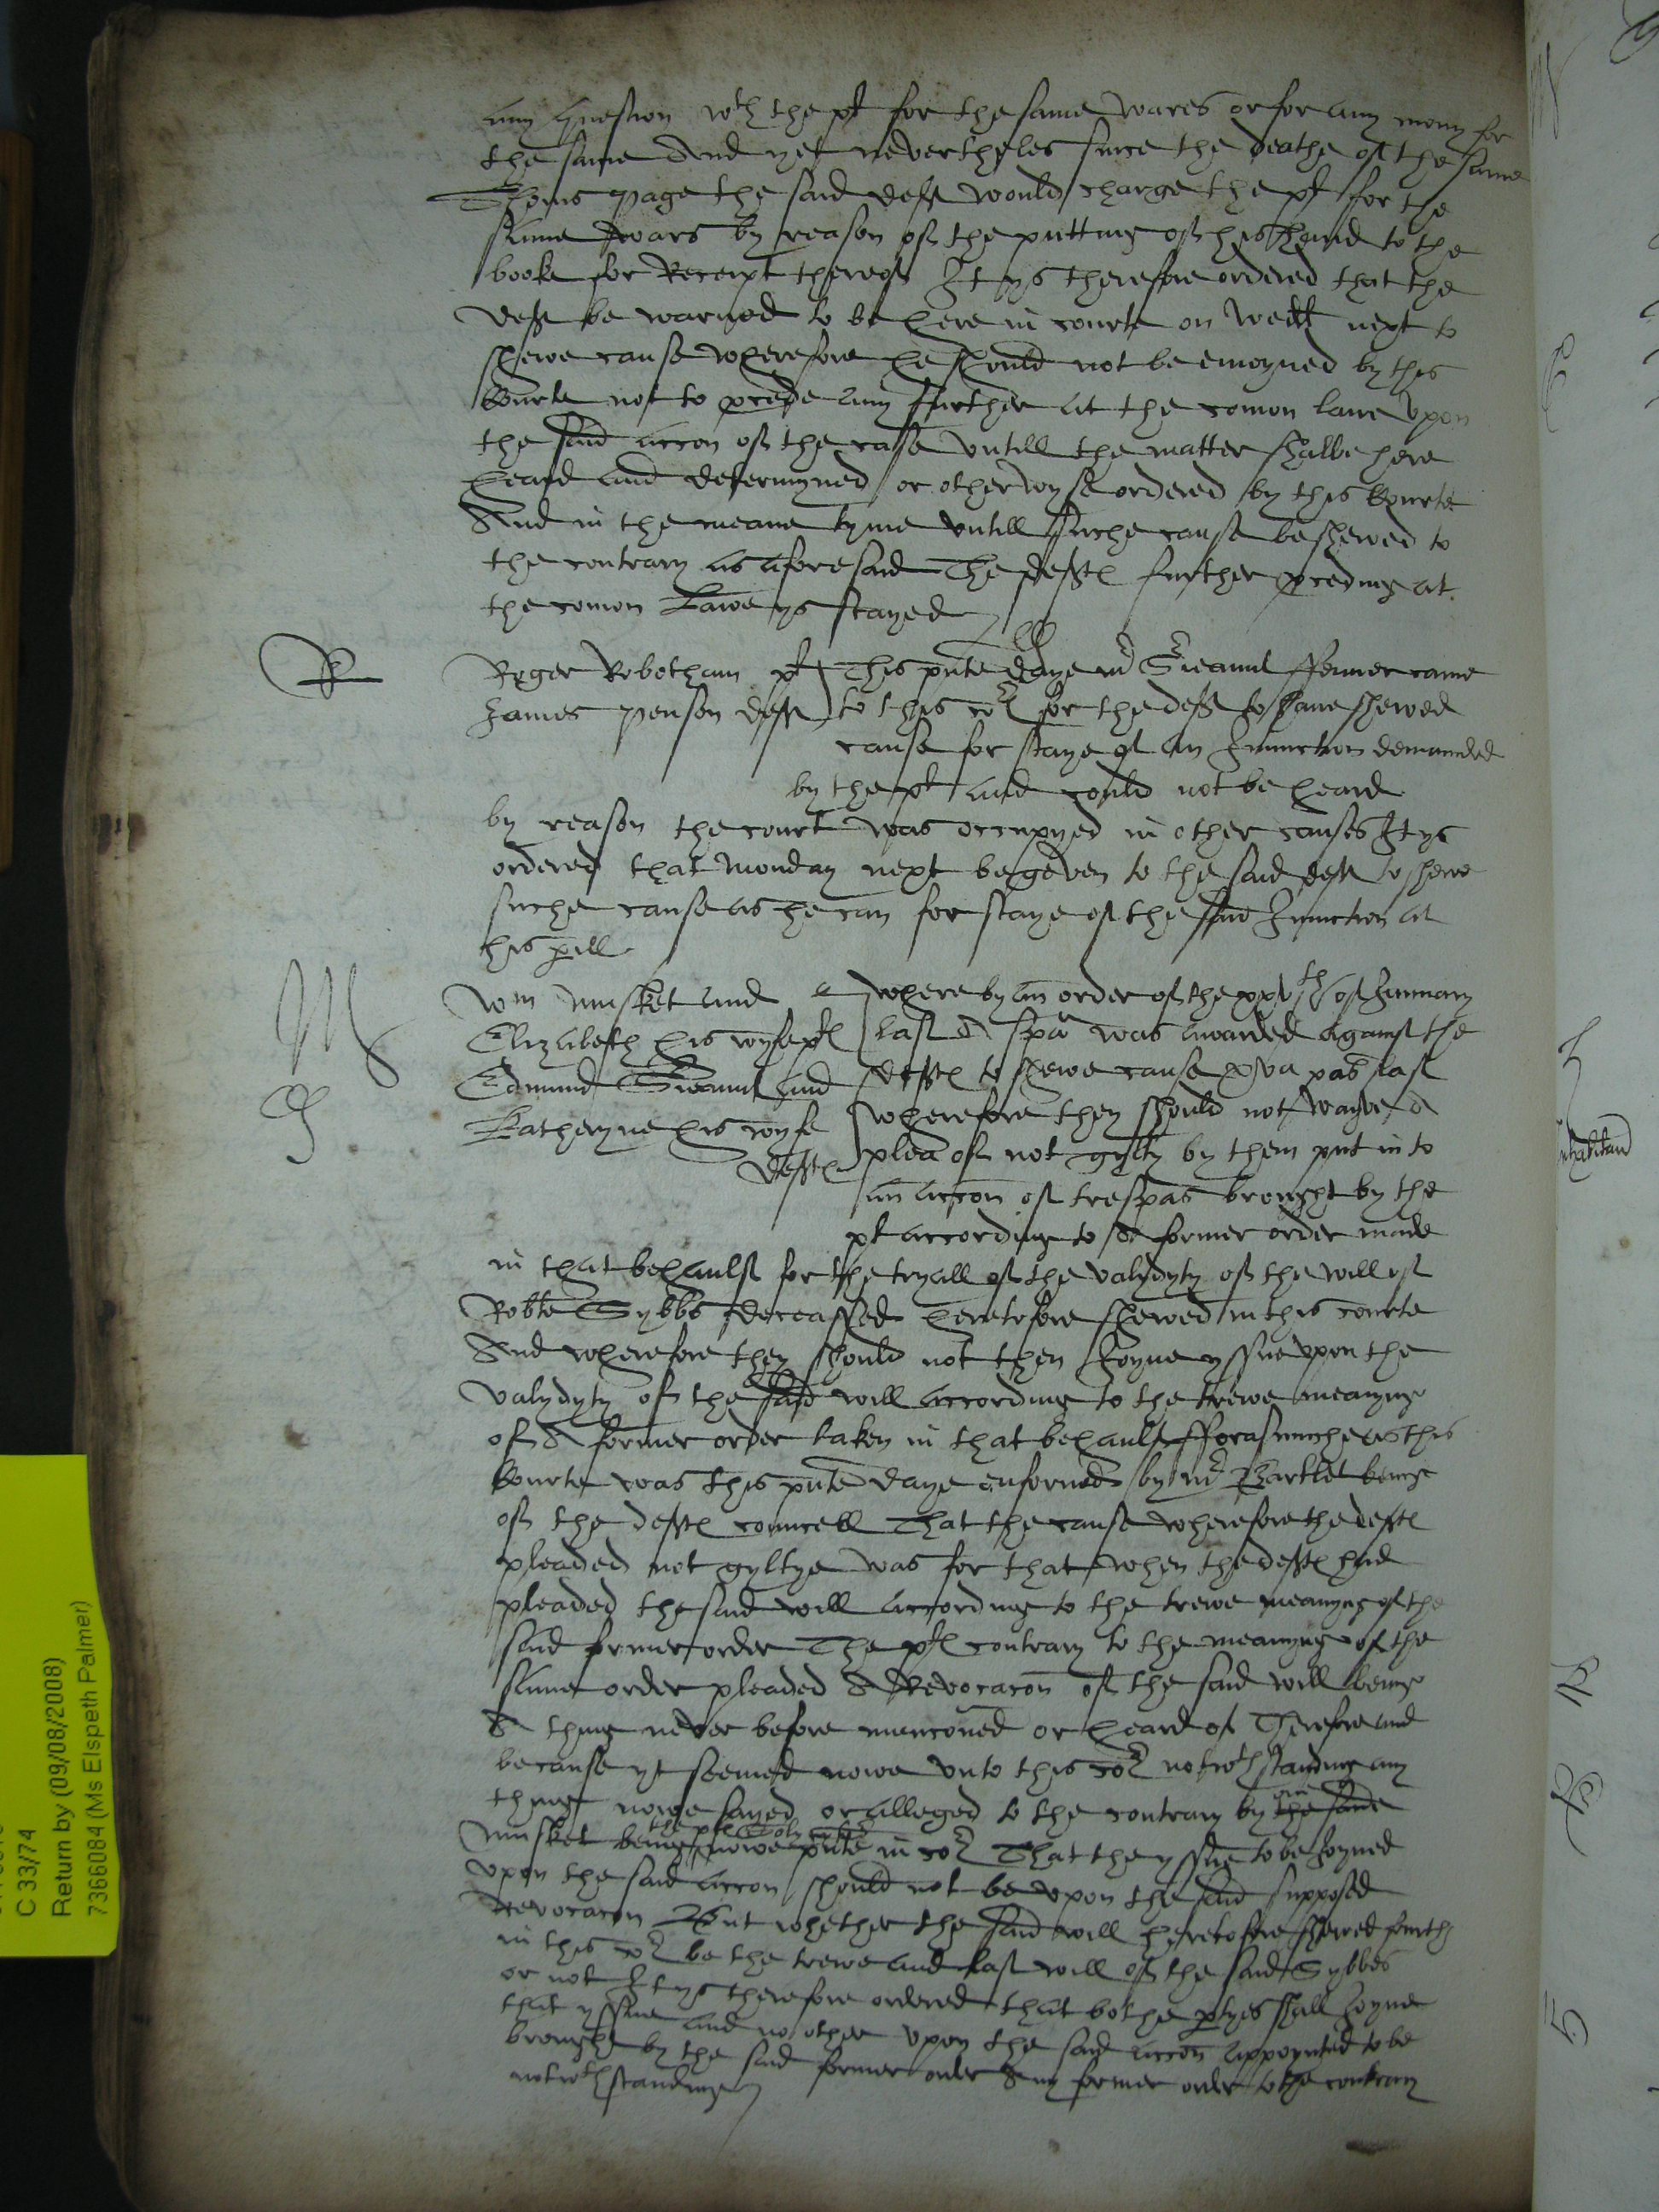 any question wth the plt for the same wares or for any mony for
the same And yet neverthelesse since the deathe of the same
Thoms page the said deft would charge the plt for the
same wars by reason of the putting of his hand to the
booke for Receipt thereof It ys therefore ordered that the
deft be warned to be here in courte on next to
shewe cause wherefore he should not be enioyned by this
Courte not to pcede any further at the comon lawe upon
the said accon of the case untill the matter shalbe here
heard and determyned or otherwyse ordered by this Courte
And in the meane tyme untill suche cause be shewed to
the contrary as aforesaid The deftes further pceding at
the comon Lawe ys stayed
R
Roger Robotham plt This pnte daye mr Srieaunt ffenner came
James Penson deft to this cor for the deft to have shewed
cause for staye of an Iniunction demaunded
by the plt and could not be heard
by reason the court was occupyed in other causes It ys
ordered that Monday next be geven to the said deft to shewe
suche cause as he can for staye of the said Iniunction at
his pill
M
Wm Musket and where by an order of the xxvjth of January
Elizabeth his wyfe ptl last A spa was awarded against the
Edmund and deftes to shewe cause last
Katheryne his wyfe wherefore they should not wayve A
deftes plea of not gylty by them put in to
an accon of trespas brought by the
plt according to A former order made
in that behaulf for the tryall of the valydyty of the will of
Robte Sybbs deceassed heretofore shewed in this courte
And wherefore they should not then Joyne yssue upon the
valydyty of the said will according to the trewe meanyng
of A former order taken in that behaulf fforasmuche as this
Courte was this pnte daye enformed by mr Bartlet being
of the deftes councell That the cause wherefore the deftes
pleaded not gyltye was for that when the deftes had
pleaded the said will according to the trewe meanyng of the
said former order The ptl contrary to the meanyng of the
same order pleaded A Revocacon of the said will being
A thing never before mencioned or heard of Therefore and
because yt seemed nowe unto this cor notwthstanding any
thing nowe sayed or alleged to the contrary by the said
Musket being nowe pnte in cor That the yssue to be Joyned
upon the said accon should not be upon the said supposed
Revocacon But whether the said will heretofore shewed furth
in this cor be the trewe and last will of the said Sybbes
or not It ys therefore ordered that bothe ptyes shall Joyne
that yssue and no other upon the said accon appoynted to be
brought by the said former order Any former order to the contrary
notwthstanding
C 33/74
Return by (09/08/2008)
7366084 (Ms Elspeth Palmer)